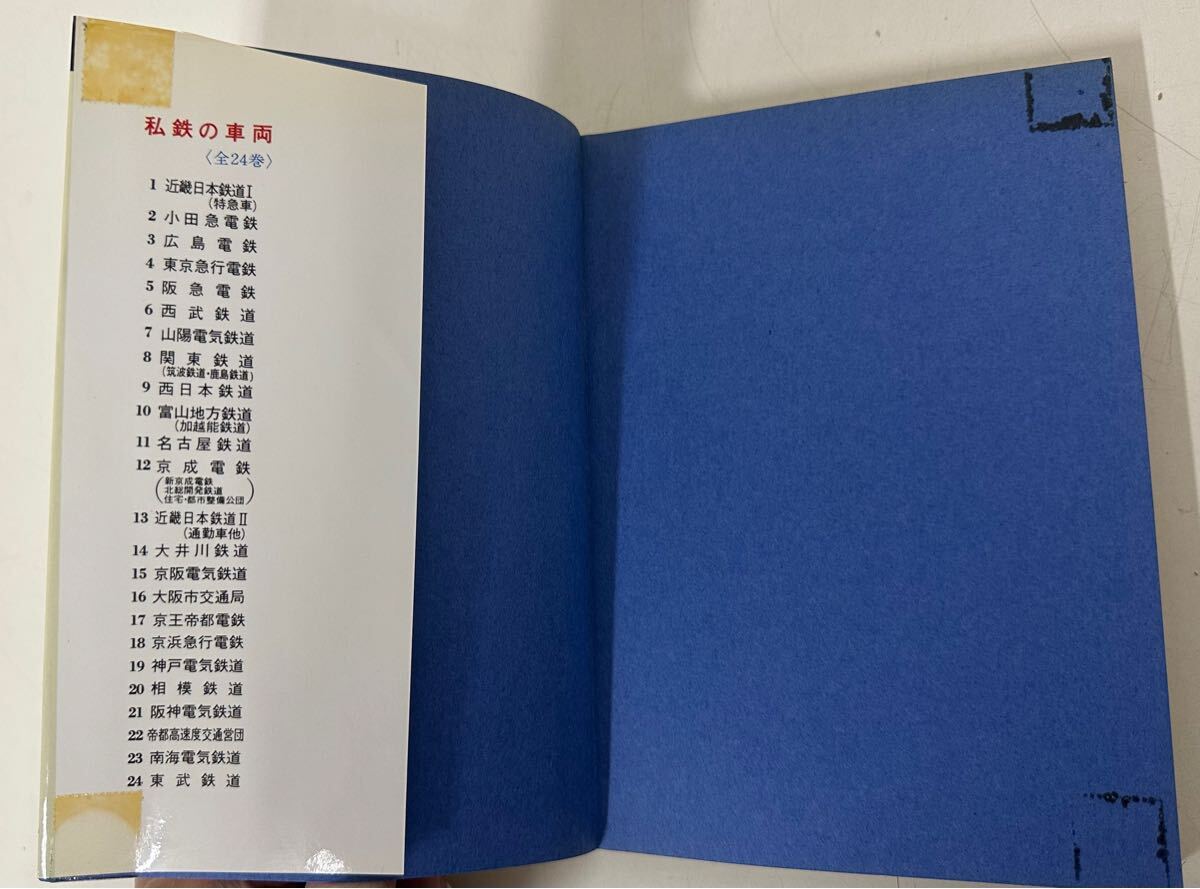 私鉄の車両
〈全24巻〉
1 近畿日本鉄道I
(特急車)
2 小田急電鉄
3 広島電鉄
4 東京急行電鉄
5 阪急電鉄
6 西武鉄道
7 山陽電気鉄道
8 関東鉄道
(筑波鉄道・鹿島鉄道)
9 西日本鉄道
10 富山地方鉄道
(加越能鉄道)
11 名古屋鉄道
12 京成電鉄
(新京成電鉄
北総開発鉄道
住宅・都市整備公団)
13 近畿日本鉄道II
(通勤車他)
14 大井川鉄道
15 京阪電気鉄道
16 大阪市交通局
17 京王帝都電鉄
18 京浜急行電鉄
19 神戸電気鉄道
20 相模鉄道
21 阪神電気鉄道
22 帝都高速度交通営団
23 南海電気鉄道
24 東武鉄道